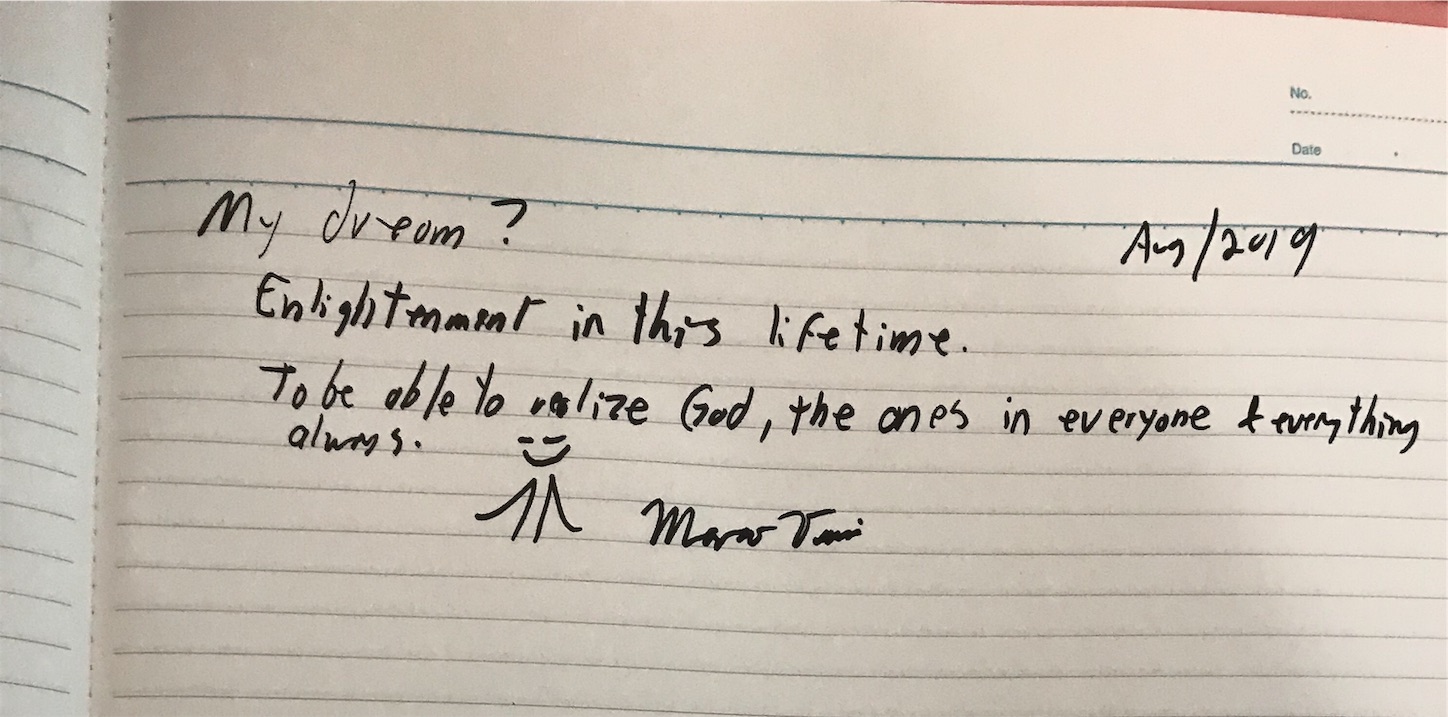 No.
Date
My dream?
Aug/2019
Enlightenment in this lifetime.
To be able to realize God, the ones in everyone & everything
always.